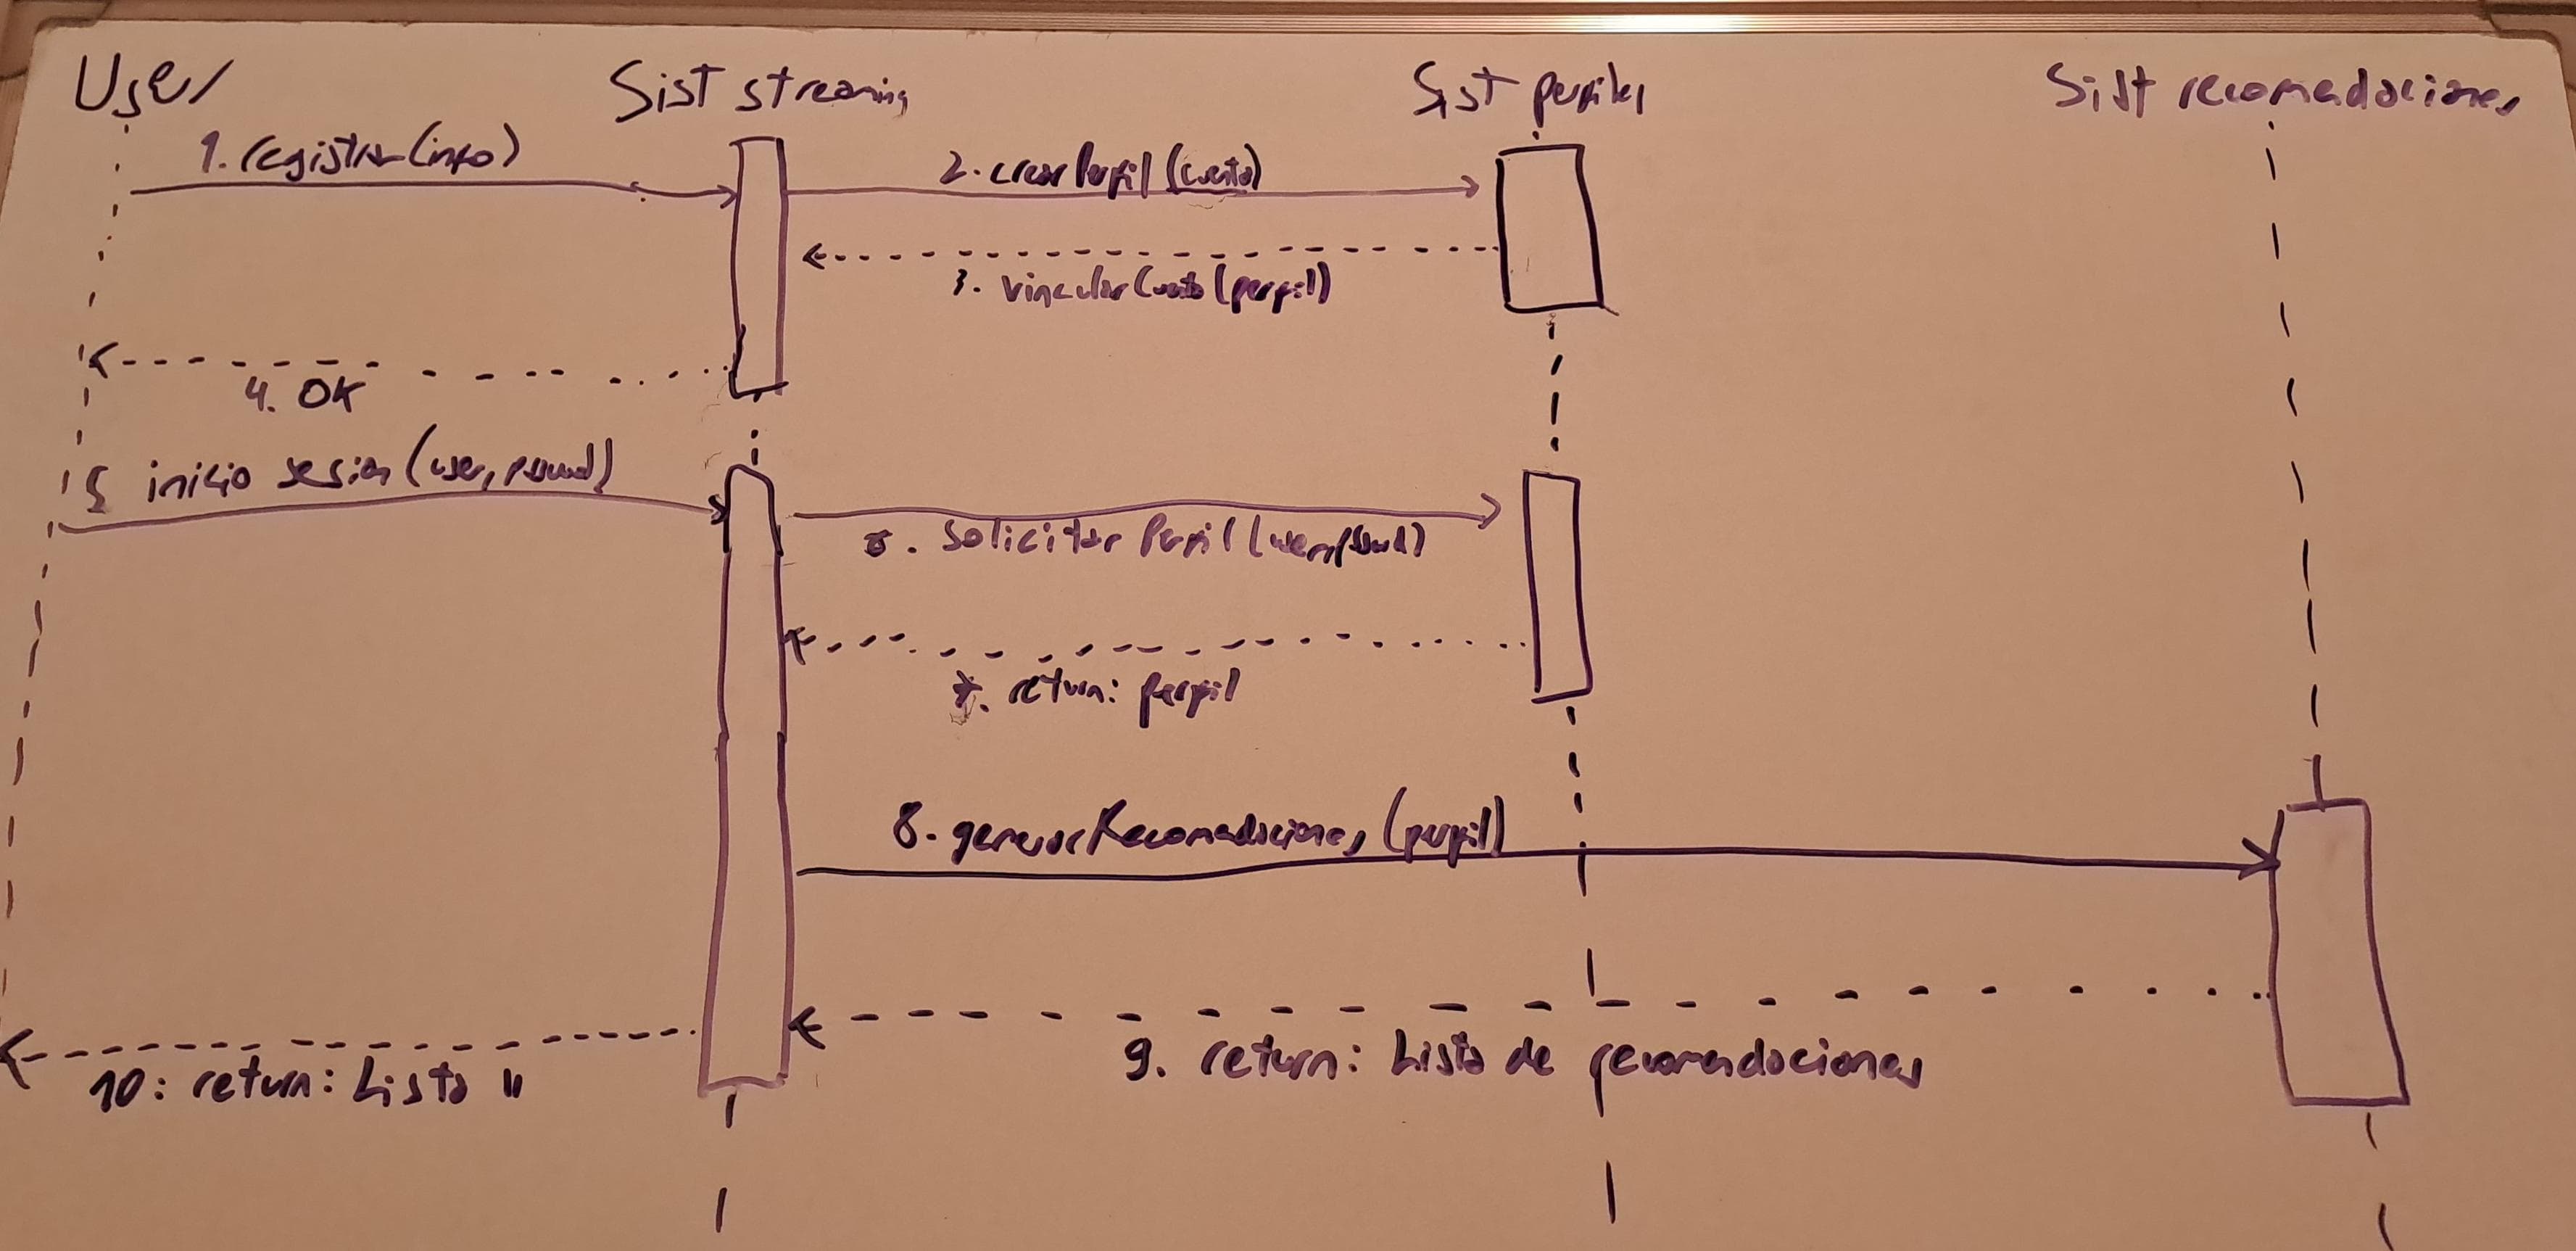 User
Sist streaming
Sist perfiles
Sist recomadaciones
1. registrar (info)
2. crear Perfil (cuenta)
3. vincular Cuenta (perfil)
4. OK
5 inicio sesion (user, psswd)
6. Solicitar Perfil (user, psswd)
7. return: perfil
8. generar Recomadaciones (perfil)
9. return: Lista de recomendaciones
10: return: Lista "